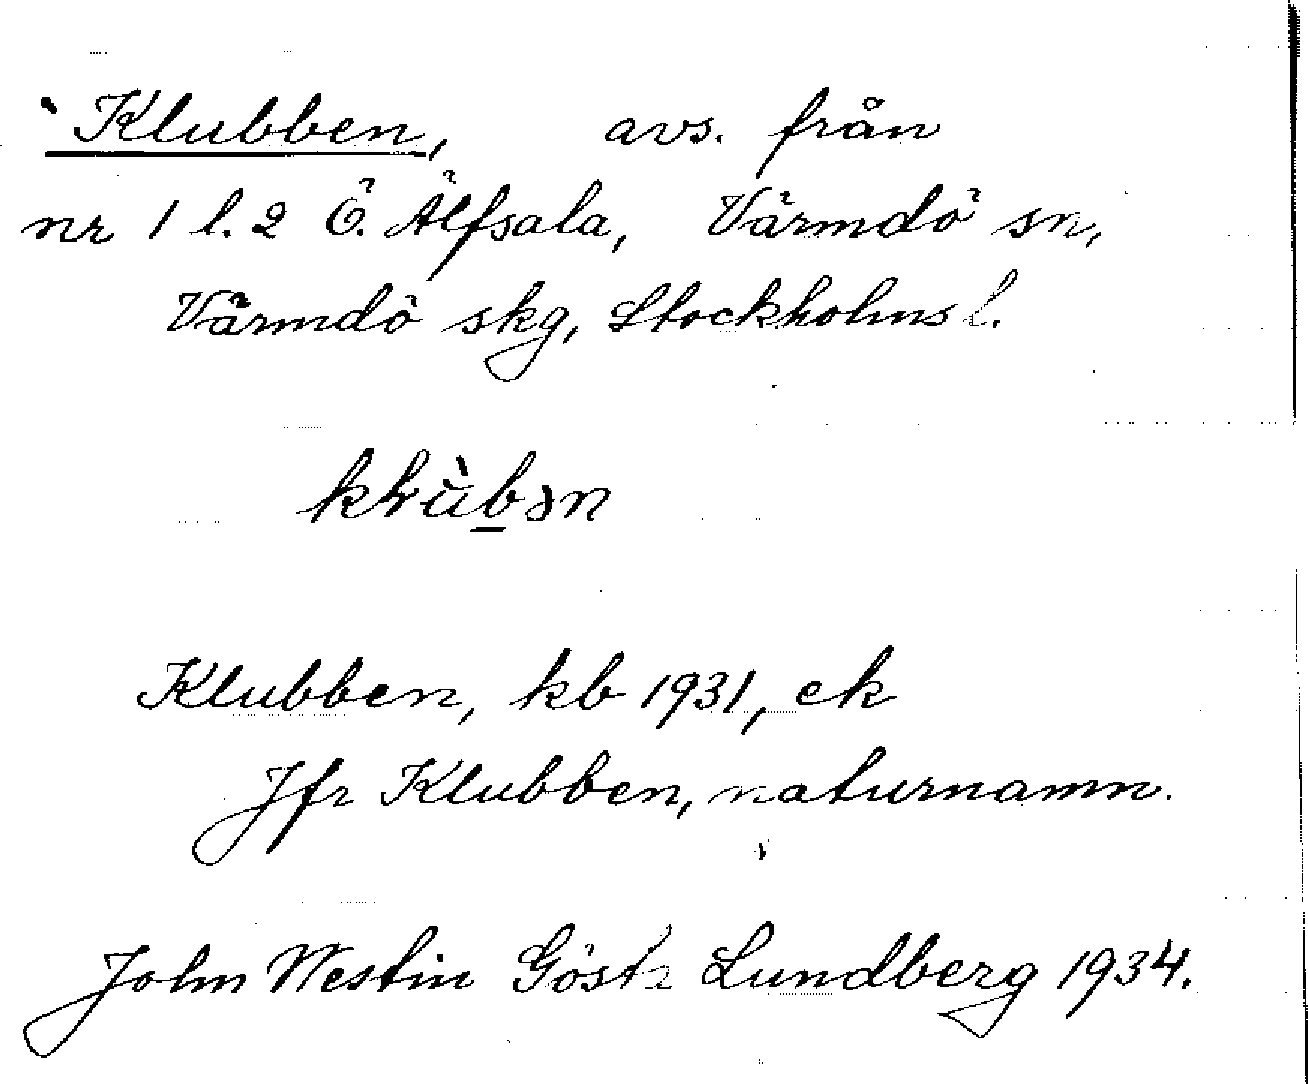 Klubben, avs. från
nr 1 l. 2 Ö. Älfsala, Värmdö sn,
Värmdö skg, Stockholms l.
Klubben, kb 1931, ek
Jfr Klubben, naturnamn.
John Westin Gösta Lundberg 1934.